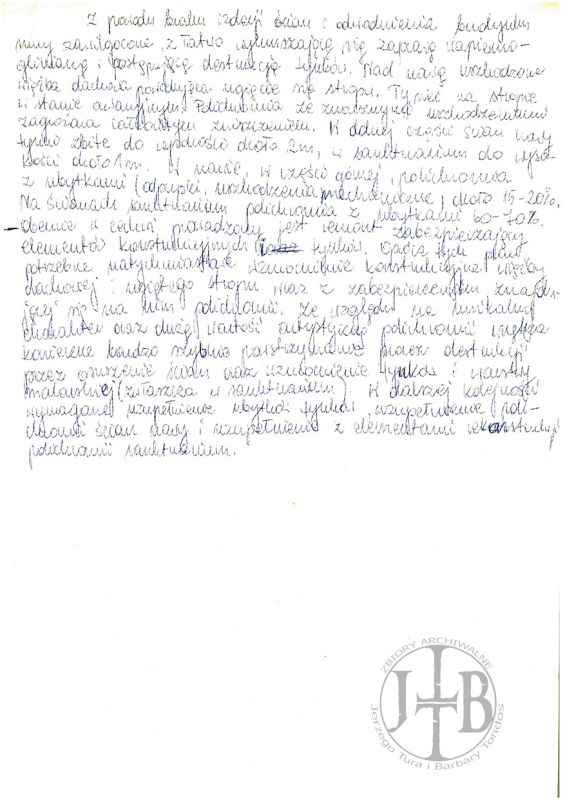 Z powodu braku izolacji ścian i odwodnienia budynku
mury zawilgocone, z łatwo wykruszającą się zaprawą wapienno-
glinianą i postępującą destrukcją tynków. Nad nawą uszkodzona
więźba dachowa powodująca ugięcie się stropu. Tynki na stropie
w stanie awaryjnym. Polichromia ze znacznymi uszkodzeniami
zagrożona całkowitym zniszczeniem. W dolnej części ścian nawy
tynki zbite do wysokości około 2m, w sanktuarium do wyso-
kości około 1m. W nawie, w części górnej, polichromia
z ubytkami (odpryski, uszkodzenia mechaniczne) około 15-20%.
Na ścianach sanktuarium polichromia z ubytkami 60-70%.
Obecnie w cerkwi prowadzony jest remont zabezpieczający
elementów konstrukcyjnych i tynków. Oprócz tych prac
potrzebne natychmiastowe wzmocnienie konstrukcyjne więźby
dachowej i ugiętego stropu wraz z zabezpieczeniem znajdu-
jącej się na nim polichromii. Ze względu na unikalny
charakter oraz dużą wartość artystyczną polichromii wnętrza
konieczne bardzo szybkie powstrzymanie proces destrukcji
przez osuszenie ścian oraz wzmocnienie tynków i warstwy
malarskiej (zwłaszcza w sanktuarium). W dalszej kolejności
wymagane uzupełnienie ubytków tynków, uzupełnienie poli-
chromii ścian nawy i uzupełnienie z elementami rekonstrukcji
polichromii sanktuarium.
ZBIORY ARCHIWALNE
JTBT
Jerzego Tura i Barbary Tondos